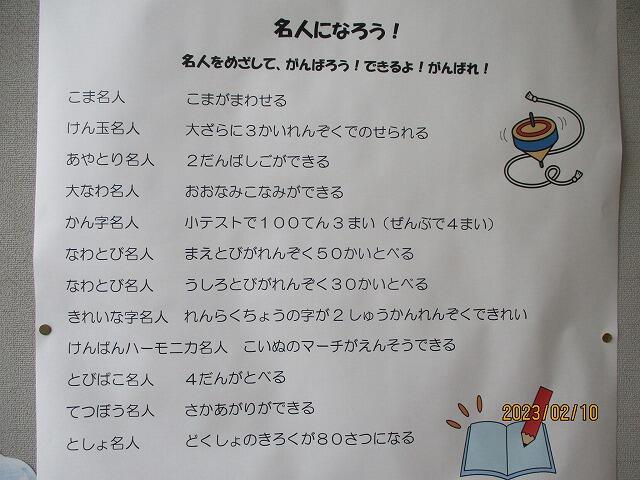 名人になろう！
名人をめざして、がんばろう！できるよ！がんばれ！
こま名人　こまがまわせる
けん玉名人　大ざらに３かいれんぞくでのせられる
あやとり名人　２だんばしごができる
大なわ名人　おおなみこなみができる
かん字名人　小テストで１００てん３まい（ぜんぶで４まい）
なわとび名人　まえとびがれんぞく５０かいとべる
なわとび名人　うしろとびがれんぞく３０かいとべる
きれいな字名人　れんらくちょうの字が２しゅうかんれんぞくできれい
けんばんハーモニカ名人　こいぬのマーチがえんそうできる
とびばこ名人　４だんがとべる
てつぼう名人　さかあがりができる
としょ名人　どくしょのきろくが８０さつになる
2023/02/10